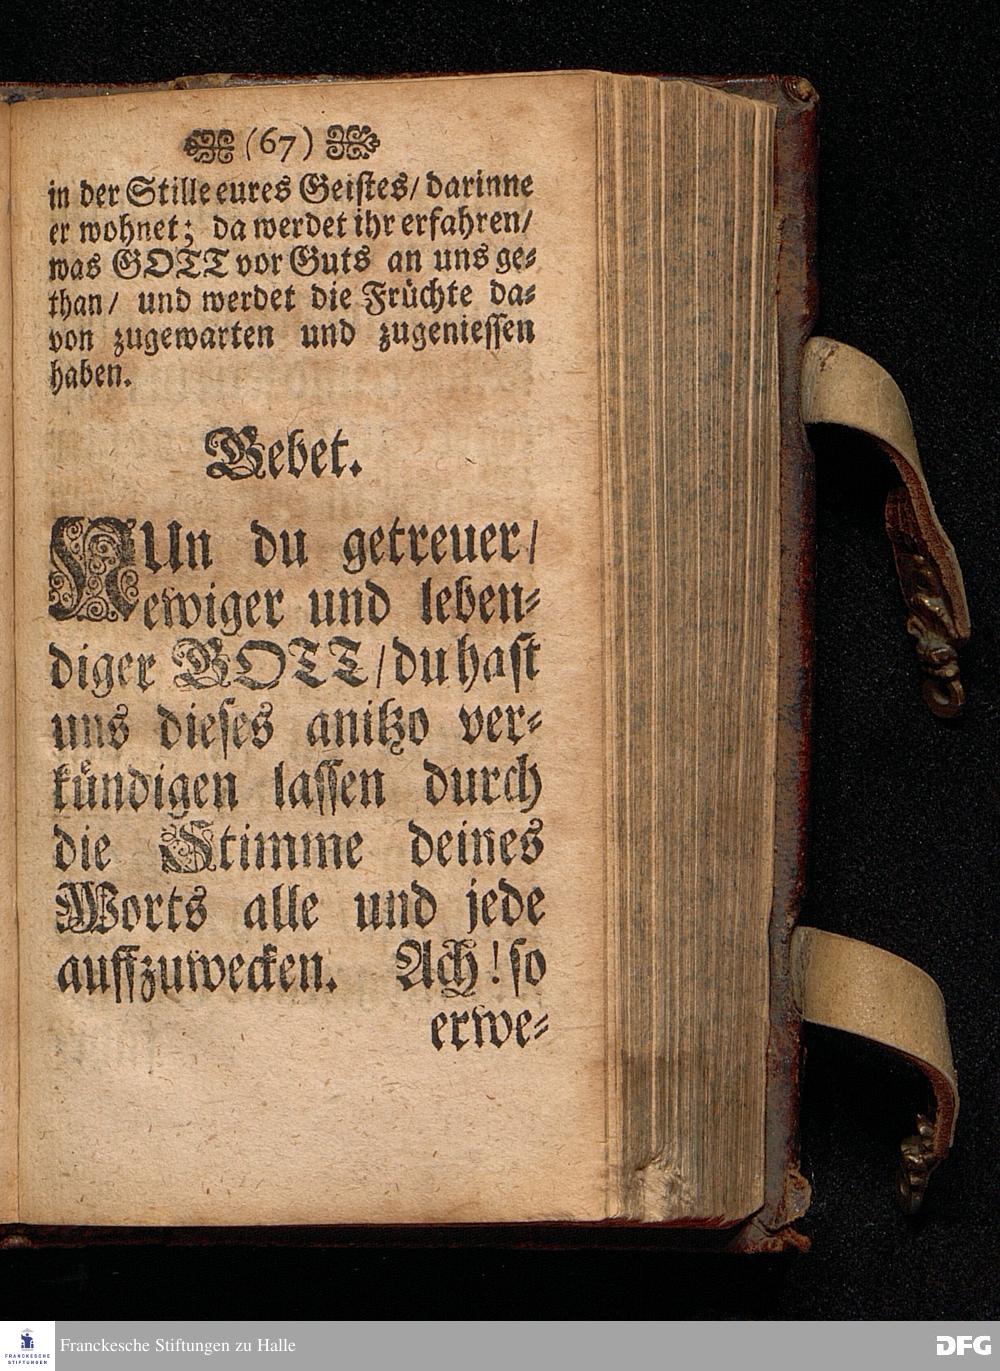 (67)
in der Stille eures Geistes/ darinne
er wohnet; da werdet ihr erfahren/
was GOTT vor Guts an uns ge-
than/ und werdet die Früchte da-
von zugewarten und zugeniessen
haben.
Gebet.
NUn du getreuer/
ewiger und leben-
diger GOTT/ du hast
uns dieses anitzo ver-
kündigen lassen durch
die Stimme deines
Worts alle und jede
auffzuwecken. Ach! so
erwe-
FRANCKESCHE
STIFTUNGEN
Franckesche Stiftungen zu Halle
DFG